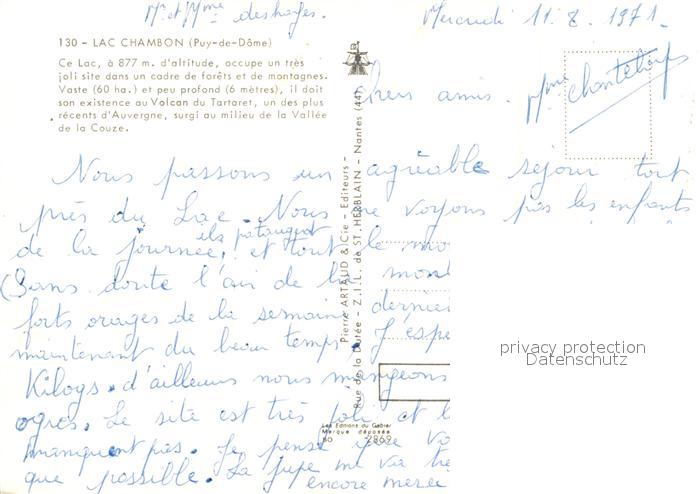 Mr et Mme deshayes.
Mercredi 11. 8. 1971.
130 - LAC CHAMBON (Puy-de-Dôme)
Ce Lac, à 877 m. d'altitude, occupe un très
joli site dans un cadre de forêts et de montagnes.
Vaste (60 ha.) et peu profond (6 mètres), il doit
son existence au Volcan du Tartaret, un des plus
récents d'Auvergne, surgi au milieu de la Vallée
de la Couze.
Chers amis. Mme
Nous passons un agréable séjour tout
près du Lac. Nous ne voyons pas les enfants
de la journée, ils pataugent et tout le mo
(Sans doute l'air de la mont
forts orages de la semaine dernier
maintenant du beau temps. J'espe
Kilogs. d'ailleurs nous mangeons
ogres. Le site est très joli et l
manquent pas. Je pense que vo
que possible. La jupe me va tre
encore merci
Pierre ARTAUD & Cie - Editeurs -
Rue de la Dutée - Z.I.L. de ST. HERBLAIN - Nantes (44)
Les Editions du Gabier
Marque déposée
60 2869
privacy protection
Datenschutz